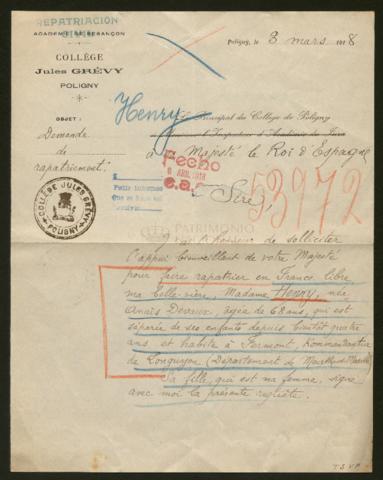 REPATRIACIÓN
ACADÉMIE DE BESANÇON
COLLÈGE
Jules GRÉVY
POLIGNY
Poligny, le 3 mars 1918
OBJET :
Demande
de
rapatriement.
Henry
Principal du Collège de Poligny
à Majesté le Roi d'Espagne
Fecho
ABR. 1918
Sire,
53972
COLLÈGE JULES GRÉVY
POLIGNY
PATRIMONIO
l'honneur de solliciter
l'appui bienveillant de votre Majesté
pour faire rapatrier en France libre
ma belle-mère, Madame Henry, née
Anaïs Devaux, âgée de 68 ans, qui est
séparée de ses enfants depuis bientôt quatre
ans, et habite à Fermont, Kommandantur
de Longuyon (Département de Meurthe-et-Moselle)
Sa fille, qui est ma femme, signe
avec moi la présente requête.
T.S.V.P.